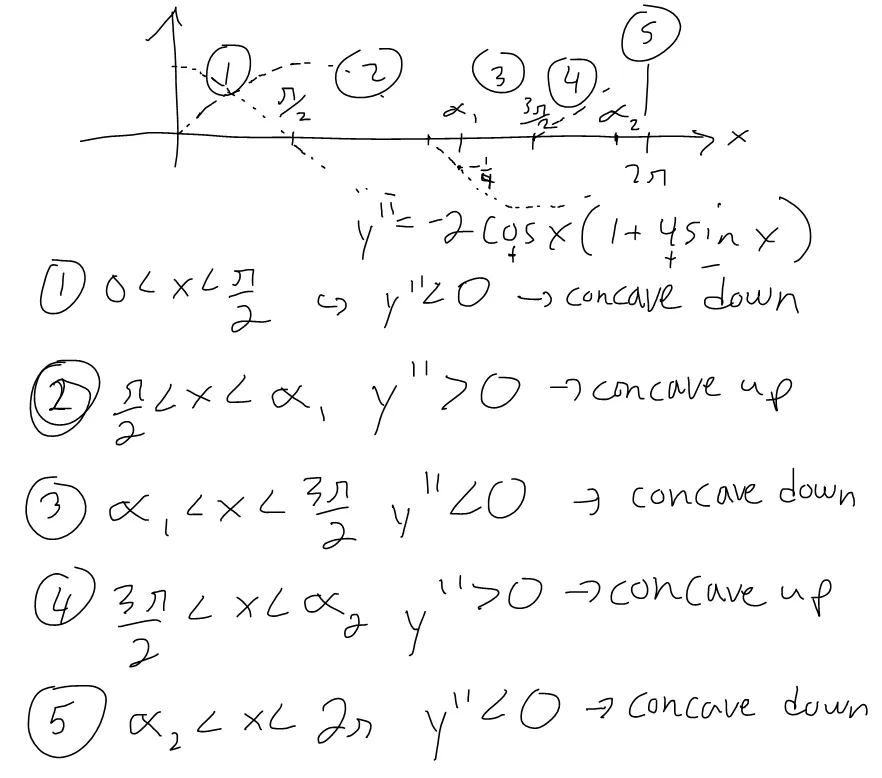 ① ② ③ ④ ⑤
π/2 α₁ 3π/2 α₂ x
-1/4 2π
y'' = -2 cos x (1 + 4 sin x)
+ + -
① 0 < x < π/2 ↪ y'' < 0 → concave down
② π/2 < x < α₁ y'' > 0 → concave up
③ α₁ < x < 3π/2 y'' < 0 → concave down
④ 3π/2 < x < α₂ y'' > 0 → concave up
⑤ α₂ < x < 2π y'' < 0 → concave down